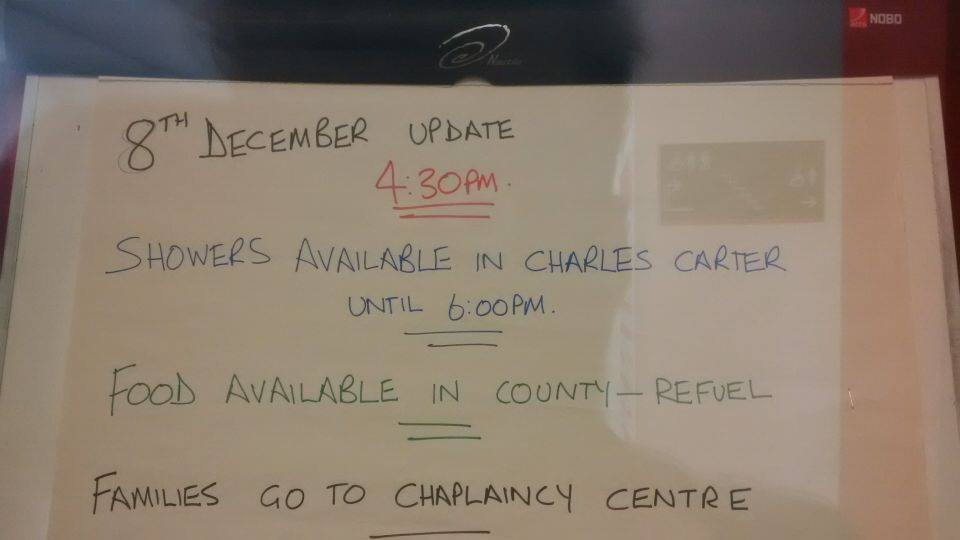 NOBO
Nautile
8TH DECEMBER UPDATE
4:30PM.
SHOWERS AVAILABLE IN CHARLES CARTER
UNTIL 6:00PM.
FOOD AVAILABLE IN COUNTY – REFUEL
FAMILIES GO TO CHAPLAINCY CENTRE